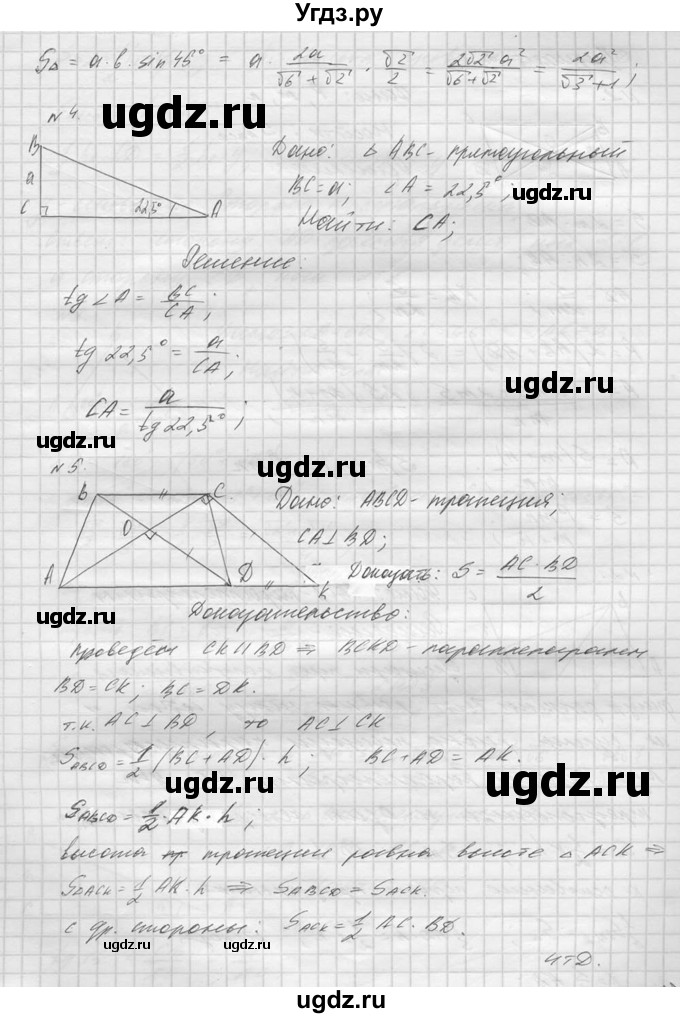 Угдз.ру
S△ = a·b·sin45° = a · 2a/(√6+√2) · √2/2 = 2√2 a²/(√6+√2) = 2a²/(√3+1);
№4.
B
a
C
22,5°
A
Дано: △ ABC - прямоугольный
BC=a; ∠A = 22,5°;
ugdz.ru
Найти: CA;
Решение:
tg∠A = BC/CA;
ugdz.ru
tg 22,5° = a/CA;
ugdz.ru
CA = a/tg22,5°;
ugdz.ru
№5.
ugdz.ru
B
C
O
A
D
K
Дано: ABCD - трапеция;
CA⊥BD;
Доказать: S = AC·BD/2
ugdz.ru
Доказательство:
ugdz.ru
Проведём CK∥BD ⇒ BCKD - параллелограмм
BD=CK; BC=DK.
ugdz.ru
т.к. AC⊥BD, то AC⊥CK
S ABCD = 1/2 (BC+AD)·h; BC+AD=AK.
ugdz.ru
ugdz.ru
S ABCD = 1/2·AK·h;
высота трапеции равна высоте △ ACK ⇒
S△ACK = 1/2 AK·h ⇒ S ABCD = S ACK.
с др. стороны: S ACK = 1/2 AC·BD.
ugdz.ru
ugdz.ru
чтд.
ugdz.ru